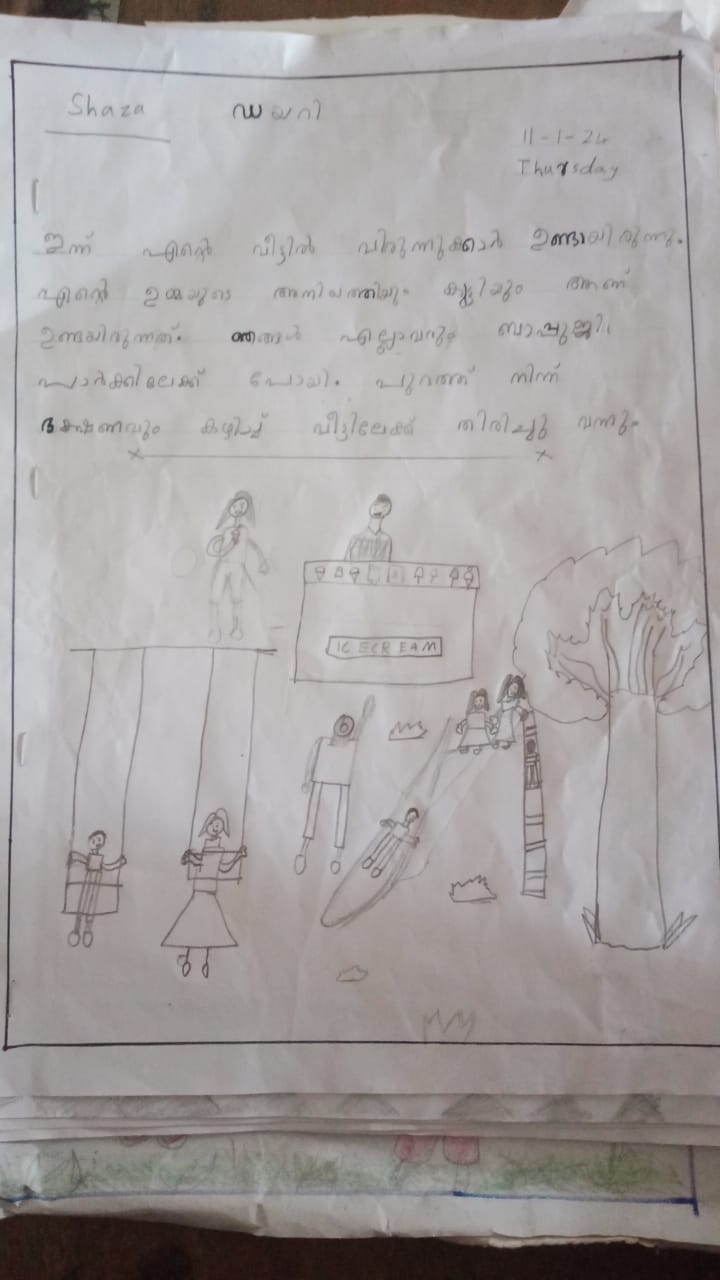 Shaza
ഡയറി
11-1-24
Thursday
ഇന്ന് എന്റെ വീട്ടിൽ വിരുന്നുക്കാർ ഉണ്ടായിരുന്നു.
എന്റെ ഉമ്മയുടെ അനിയത്തിയും കുട്ടിയും ആണ്
ഉണ്ടയിരുന്നത്. ഞങ്ങൾ എല്ലാവരും ബാപ്പുജി
പാർക്കിലേക്ക് പോയി. പുറത്ത് നിന്ന്
ഭക്ഷണവും കഴിച്ച് വീട്ടിലേക്ക് തിരിച്ചു വന്നു.
ICECREAM